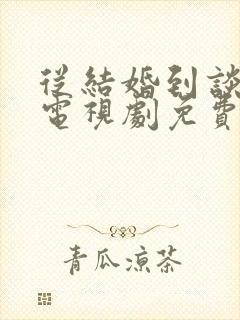 從結婚到談
電視劇免費
青瓜涼茶